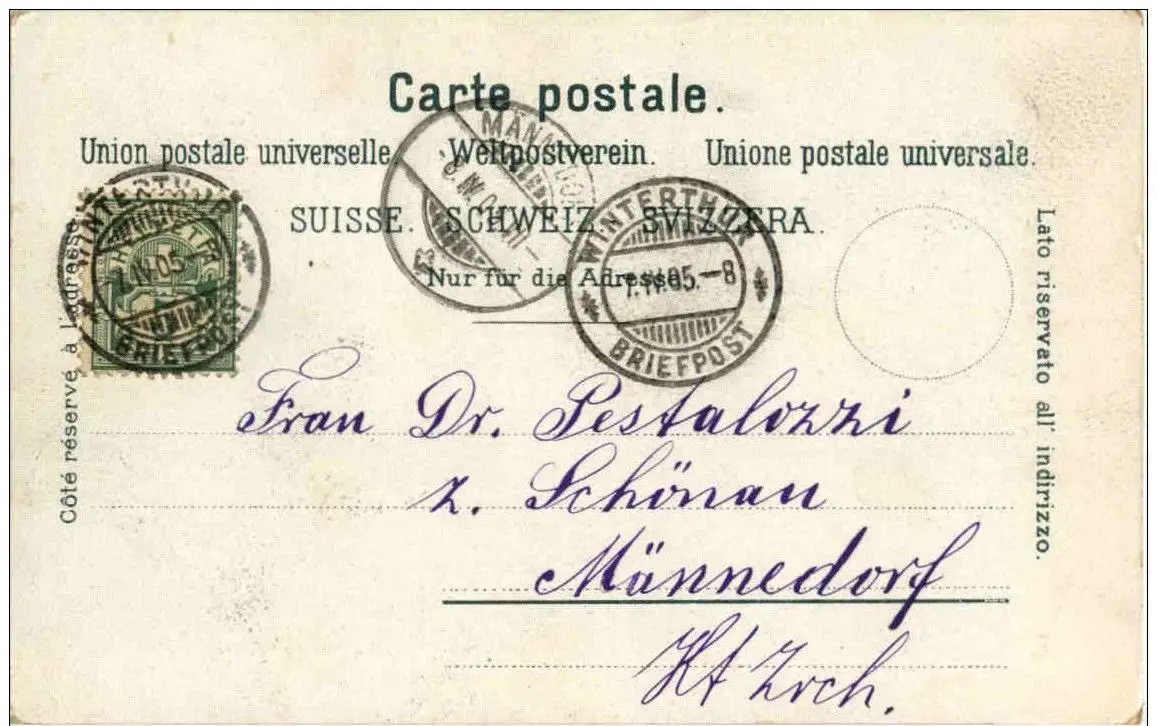 Carte postale.
Union postale universelle. Weltpostverein. Unione postale universale.
SUISSE. SCHWEIZ. SVIZZERA.
Nur für die Adresse.
Côté réservé à l'adresse.
Lato riservato all' indirizzo.
WINTERTHUR
7.IV.05.-8
BRIEFPOST
WINTERTHUR
7.IV.05.-8
BRIEFPOST
MÄNNEDORF
Frau Dr. Pestalozzi
z. Schönau
Männedorf
Kt Zrch.